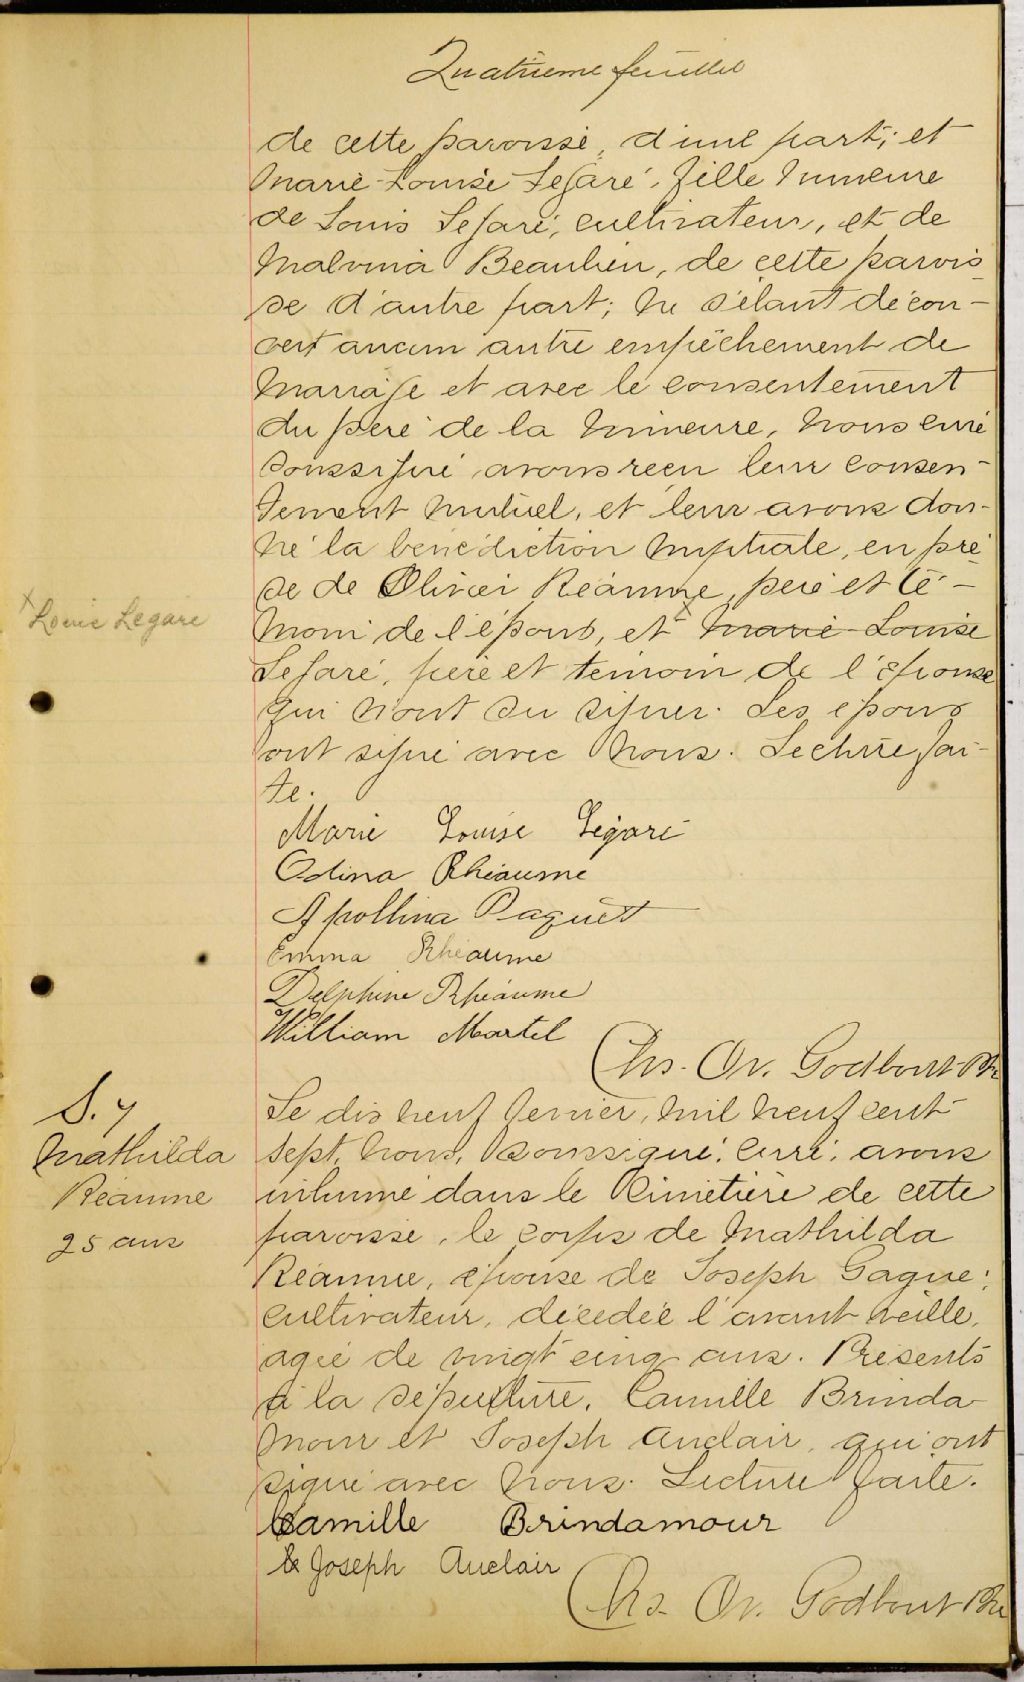 Quatrième feuillet
de cette paroisse, d'une part; et
Marie-Louise Legaré, fille mineure
de Louis Legaré, cultivateur, et de
Malvina Beaulieu, de cette parois
se d'autre part; ne s'étant décou-
vert aucun autre empêchement de
mariage et avec le consentement
du père de la mineure, nous curé
soussigné avons reçu leur consen-
tement mutuel, et leur avons don-
né la bénédiction nuptiale, en pré
se de Olivier Réaume, père et té-
moin de l'époux, et x Marie-Louise
x Louis Legare
Legaré, père et témoin de l'épouse
qui n'ont su signer. Les époux
ont signé avec nous. Lecture fai-
te.
Marie Louise Légaré
Odina Rhéaume
Apollina Paquet
Emma Rhéaume
Delphine Rhéaume
William Martel
Chs. Or. Godbout Ptre
S. 4
Mathilda
Réaume
25 ans
Le dix neuf fevrier, mil neuf cent
sept, nous, soussigné, curé, avons
inhumé dans le cimetière de cette
paroisse, le corps de Mathilda
Réaume, épouse de Joseph Gagné,
cultivateur, décédée l'avant veille,
agée de vingt cinq ans. Présents
à la sépulture, Camille Brinda
mour et Joseph Auclair, qui ont
signé avec nous. Lecture faite.
Camille Brindamour
Joseph Auclair
Chs. Or. Godbout Ptre